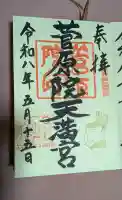 奉拝
菅原院天満宮
令和八年五月十五日